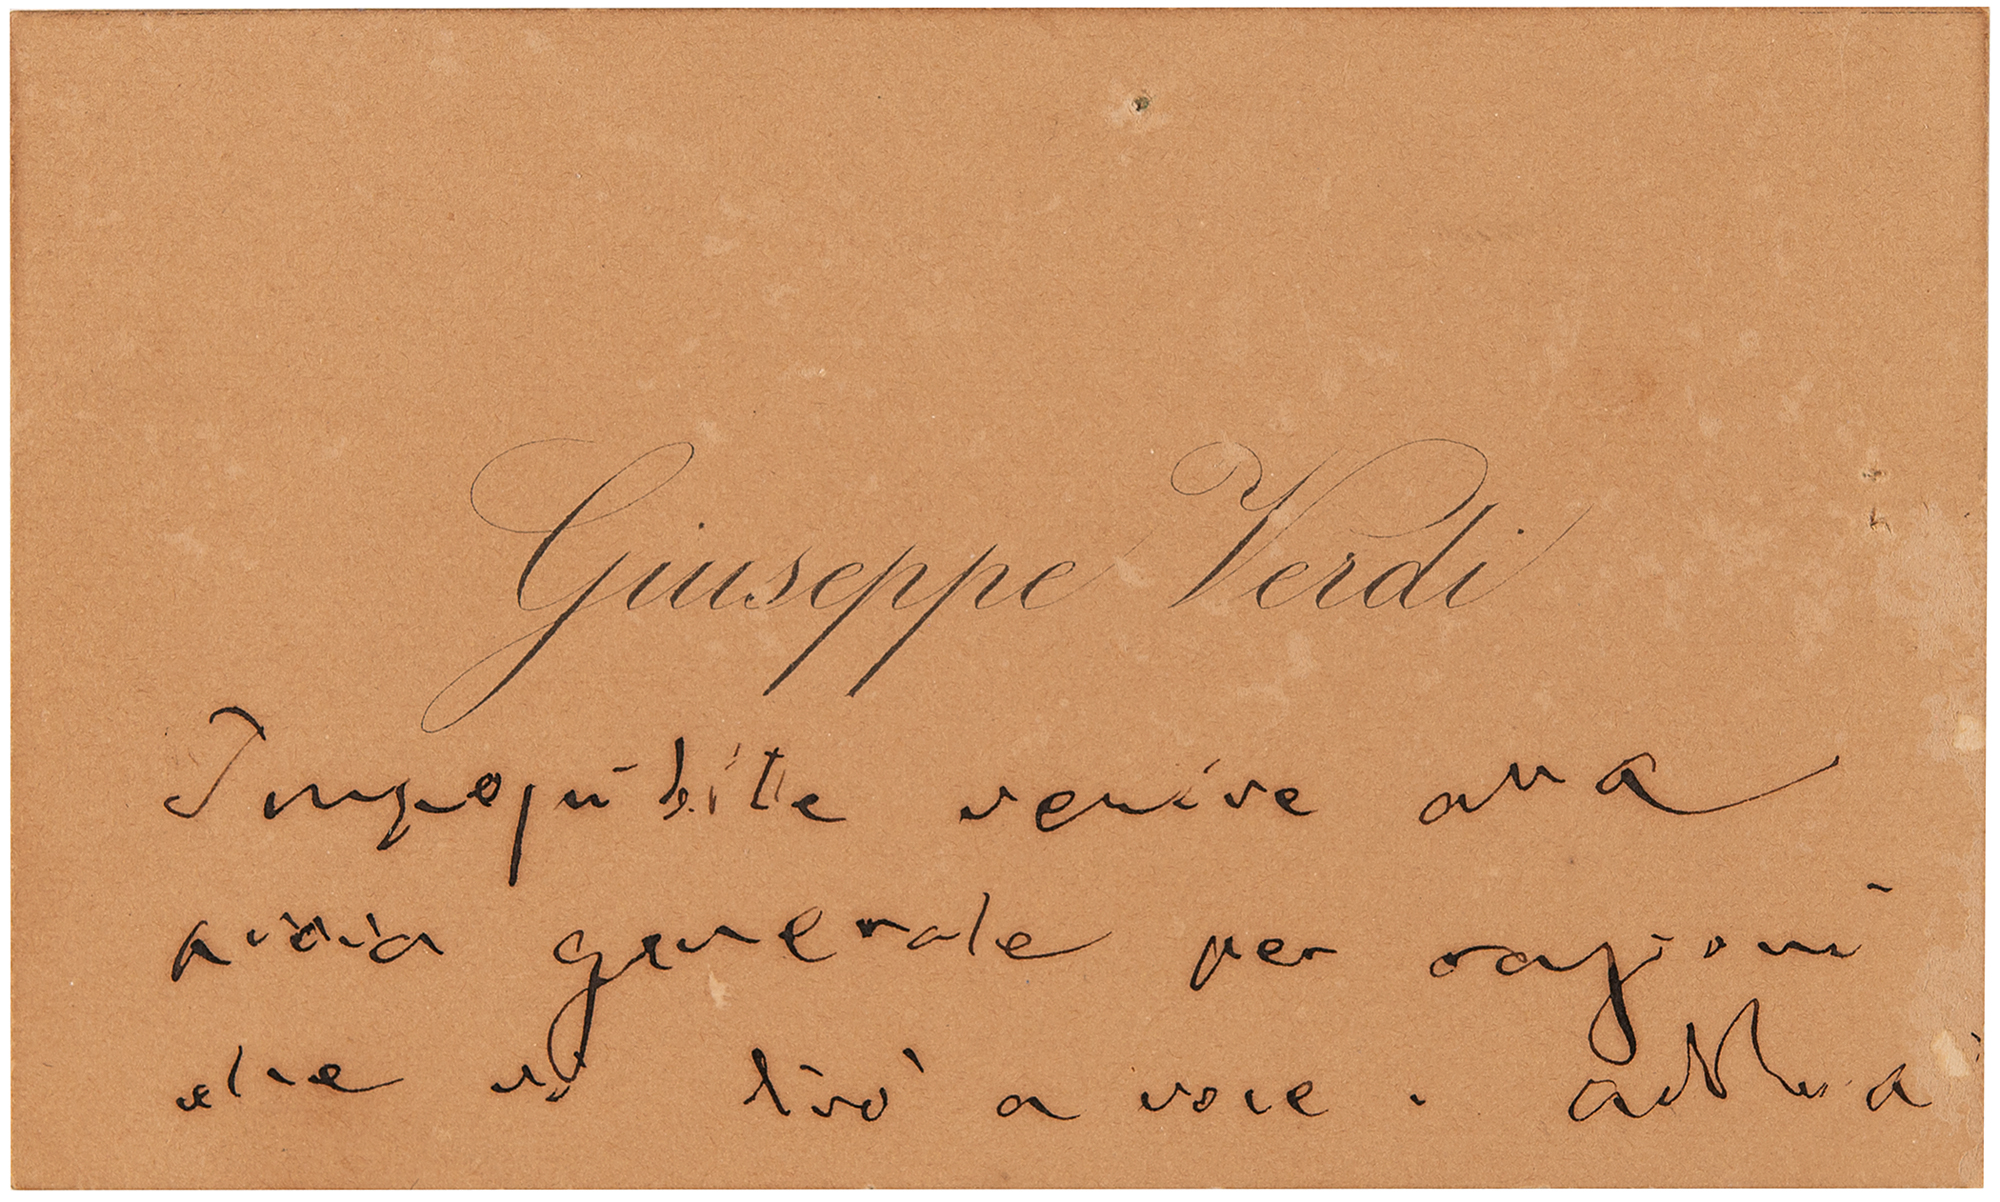 Giuseppe Verdi
Impossibile venire alla
prova generale per ragioni
che vi dirò a voce.